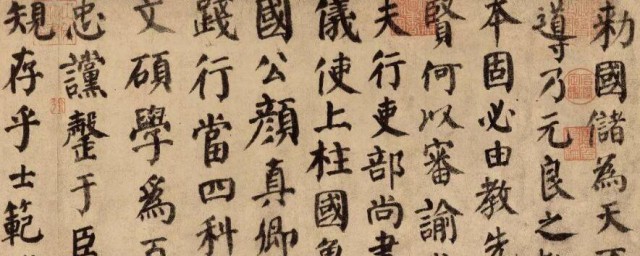 勅國儲為天
導乃元良之
本固必由教先
賢何以審諭
夫行吏部尚書
儀使上柱國魯
國公顏真卿
踐行當四科
文碩學爲百
忠讜罄于臣
䂓存乎士範